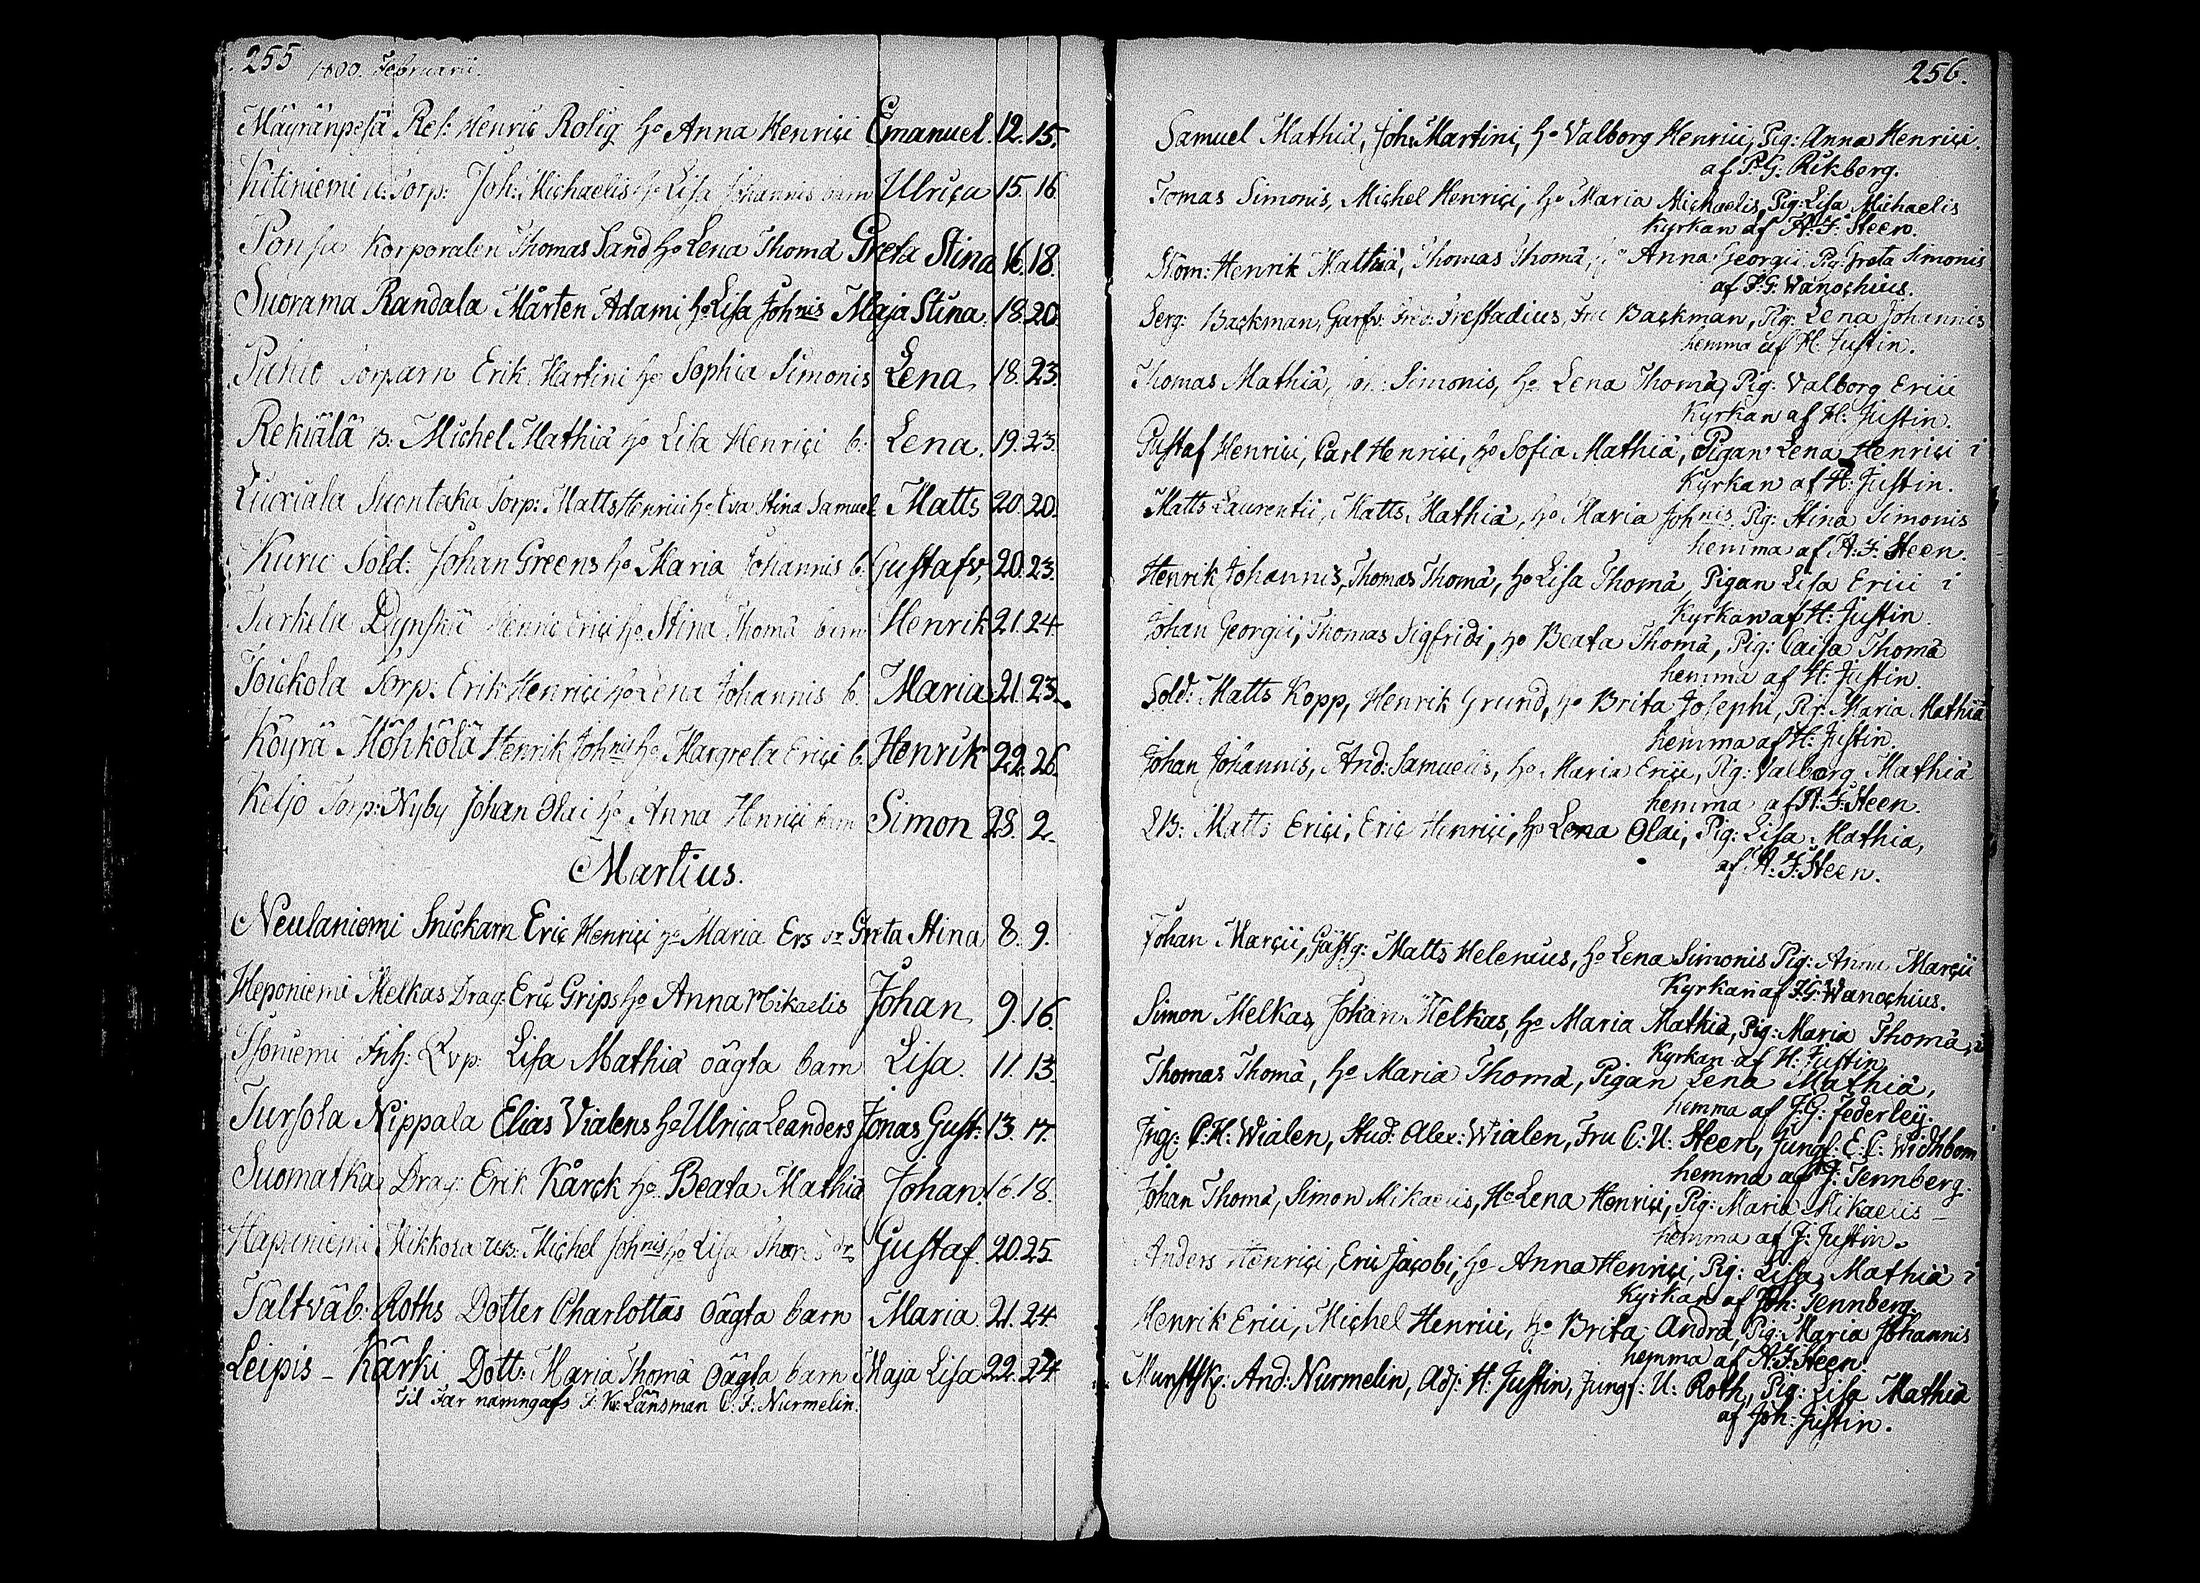 255 1800. Februarii.
Mäyränpesä Ref: Henriç Rolig ho Anna Henriçi Emanuel. 12. 15.
Kutiniemi Torp: Joh: Miçhaelis ho Lisa Johannis barn Ulriça 15. 16.
Ponsa Korporalen Thomas Sand ho Lena Thomä Greta Stina 16. 18.
Suorama Randala Mårten Adami ho Lisa Johnis Maja Stina. 18. 20.
Torparn Erik Martini ho Sophia Simonis Lena 18. 23.
Rekiälä B: Miçhel Mathiä ho Lisa Henriçi b: Lena. 19. 23.
Suontaka Torp: Matts Henrici ho Eva Stina Samuel Matts 20. 20.
Kuru Sold: Johan Greens ho Maria Johannis b: Gustafv, 20. 23.
Henric Eriçi ho Stina Thomä barn Henrik 21. 24.
Toiçkola Torp: Erik Henriçi ho Lena Johannis b. Maria 21. 23.
Köyrä Möhkölä Henrik Johnis ho Margreta Eriçi b. Henrik 22. 26.
Keljo Torp: Nyby Johan Olai ho Anna Henriçi barn Simon 28. 2.
Martius.
Neulaniemi Sniçkarn Eriç Henriçi ho Maria Ers dr Greta Stina 8. 9.
Heponiemi Melkas Drag: Eriç Grips ho Anna Mikaelis Johan 9. 16.
Isoniemi Inh: Qvp. Lisa Mathiä oägta barn Lisa. 11. 13.
Tursola Nippala Elias Vialens ho Ulriça Leanders Jonas Gust: 13. 17.
Suomatka Drag: Erik Kårçk ho Beata Mathiä Johan. 16. 18.
Hapuniemi Mikkola Miçhel Johnis ho Lisa dr Gustaf. 20. 25.
Tältväb: Roths Dotter Charlottas oägta barn Maria. 21. 24.
Leipis - Kärki Dott: Maria Thomä oägta barn Maja Lisa 22. 24.
Til Far namngafs Länsman C: F: Nurmelin.
256.
Samuel Mathiä, Joh: Martini, ho Valborg Henrici, Pig: Anna Henriçi.
af P. G: Rikberg.
Tomas Simonis, Miçhel Henriçi, ho Maria Miçhaelis, Pig: Lisa Michaelis
Kyrkan af A: F: Steen.
Henrik Mathiä, Thomas Thomä, Anna Georgii Pig: Greta Simonis
af J: G: Wanoçhius.
Serg: Baçkman, Frestadius, Fru Baçkman, Pig: Lena Johannis
hemma af H: Justin.
Thomas Mathiä, Simonis, ho Lena Thomä, Pig: Valborg Erici
Kyrkan af H: Justin.
Gustaf Henriçi, Carl Henriçi, ho Sofia Mathiä, Pigan Lena Henriçi i
Kyrkan af H: Justin.
Matts Laurentii, Matts Mathiä, ho Maria Johnis Pig: Stina Simonis
hemma af A: F: Steen.
Henrik Johannis, Thomas Thomä, ho Lisa Thomä Pigan Lisa Erici i
Kyrkan af H: Justin.
Johan Georgii, Thomas Sigfridi, ho Beata Thomä, Pig: Caisa Thomä
hemma af H: Justin.
Sold: Matts Kopp, Henrik Grund, ho Brita Josephi, Pig: Maria Mathiä
hemma af H: Justin.
Johan Johannis, And: Samuelis, ho Maria Eriçi, Pig: Valborg Mathiä
hemma af A: F: Steen.
Matts Eriçi, Eriç Henriçi, ho Lena Olai, Pig: Lisa Mathiä,
af A: F: Steen.
Johan Marçii, Gästg: Matts Helenius, ho Lena Simonis Pig: Anna Marçii
Kyrkan af J: G: Wanoçhius.
Simon Melkas, Johan Melkas, ho Maria Mathiä, Pig: Maria Thomä, i
Kyrkan af H: Justin.
Thomas Thomä, ho Maria Thomä, Pigan Lena Mathiä,
hemma af J: G: Federleÿ.
Ing: C: H: Wialen, Stud: Alex: Wialen, Fru C: U: Steen, Jungf: E: C: Widhbom
hemma af J: Tennberg.
Johan Thomä, Simon Mikaelis, Ho Lena Henriçi, Pig: Maria Mikaelis -
hemma af J: Justin.
Anders Henriçi, Eric Jaçobi, ho Anna Henriçi, Pig: Lisa Mathiä i
Kyrkan af Joh: Tennberg.
Henrik Erici, Miçhel Henrici, ho Brita Andrä, Pig: Maria Johannis
hemma af A: F: Steen.
Munstsk: And: Nurmelin, Adj: H: Justin, Jungf: U: Roth, Pig: Lisa Mathiä
af Joh: Justin.